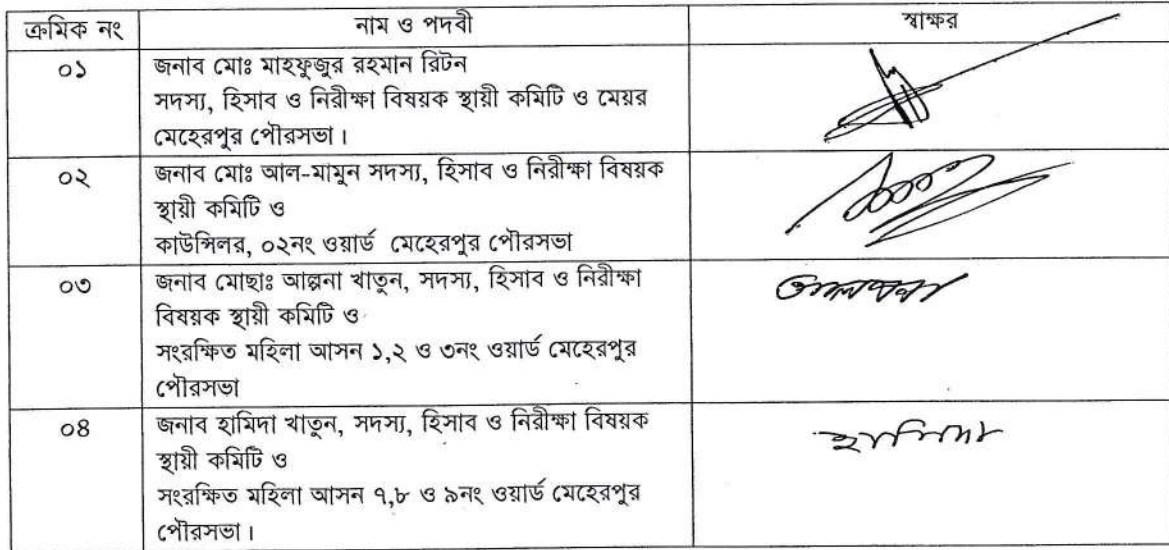 ক্রমিক নং নাম ও পদবী স্বাক্ষর
০১ জনাব মোঃ মাহফুজুর রহমান রিটন
সদস্য, হিসাব ও নিরীক্ষা বিষয়ক স্থায়ী কমিটি ও মেয়র
মেহেরপুর পৌরসভা।
০২ জনাব মোঃ আল-মামুন সদস্য, হিসাব ও নিরীক্ষা বিষয়ক
স্থায়ী কমিটি ও
কাউন্সিলর, ০২নং ওয়ার্ড মেহেরপুর পৌরসভা
০৩ জনাব মোছাঃ আল্পনা খাতুন, সদস্য, হিসাব ও নিরীক্ষা
বিষয়ক স্থায়ী কমিটি ও
সংরক্ষিত মহিলা আসন ১,২ ও ৩নং ওয়ার্ড মেহেরপুর
পৌরসভা
০৪ জনাব হামিদা খাতুন, সদস্য, হিসাব ও নিরীক্ষা বিষয়ক হামিদা
স্থায়ী কমিটি ও
সংরক্ষিত মহিলা আসন ৭,৮ ও ৯নং ওয়ার্ড মেহেরপুর
পৌরসভা।